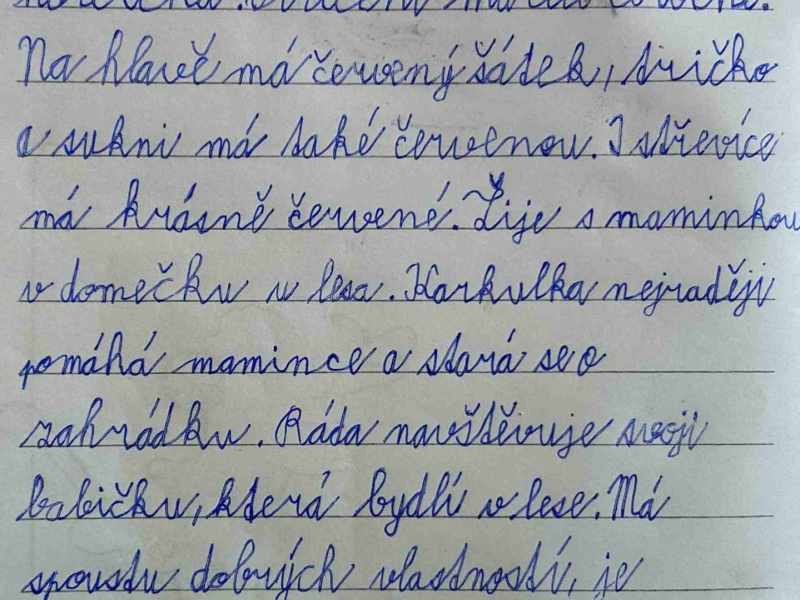 Na hlavě má červený šátek, tričko
a sukni má také červenou. I střevíce
má krásně červené. Žije s maminkou
v domečku u lesa. Karkulka nejraději
pomáhá mamince a stará se o
zahrádku. Ráda navštěvuje svoji
babičku, která bydlí v lese. Má
spoustu dobrých vlastností, je